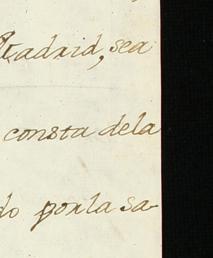 Madrid, sea
consta dela
do porla sa-